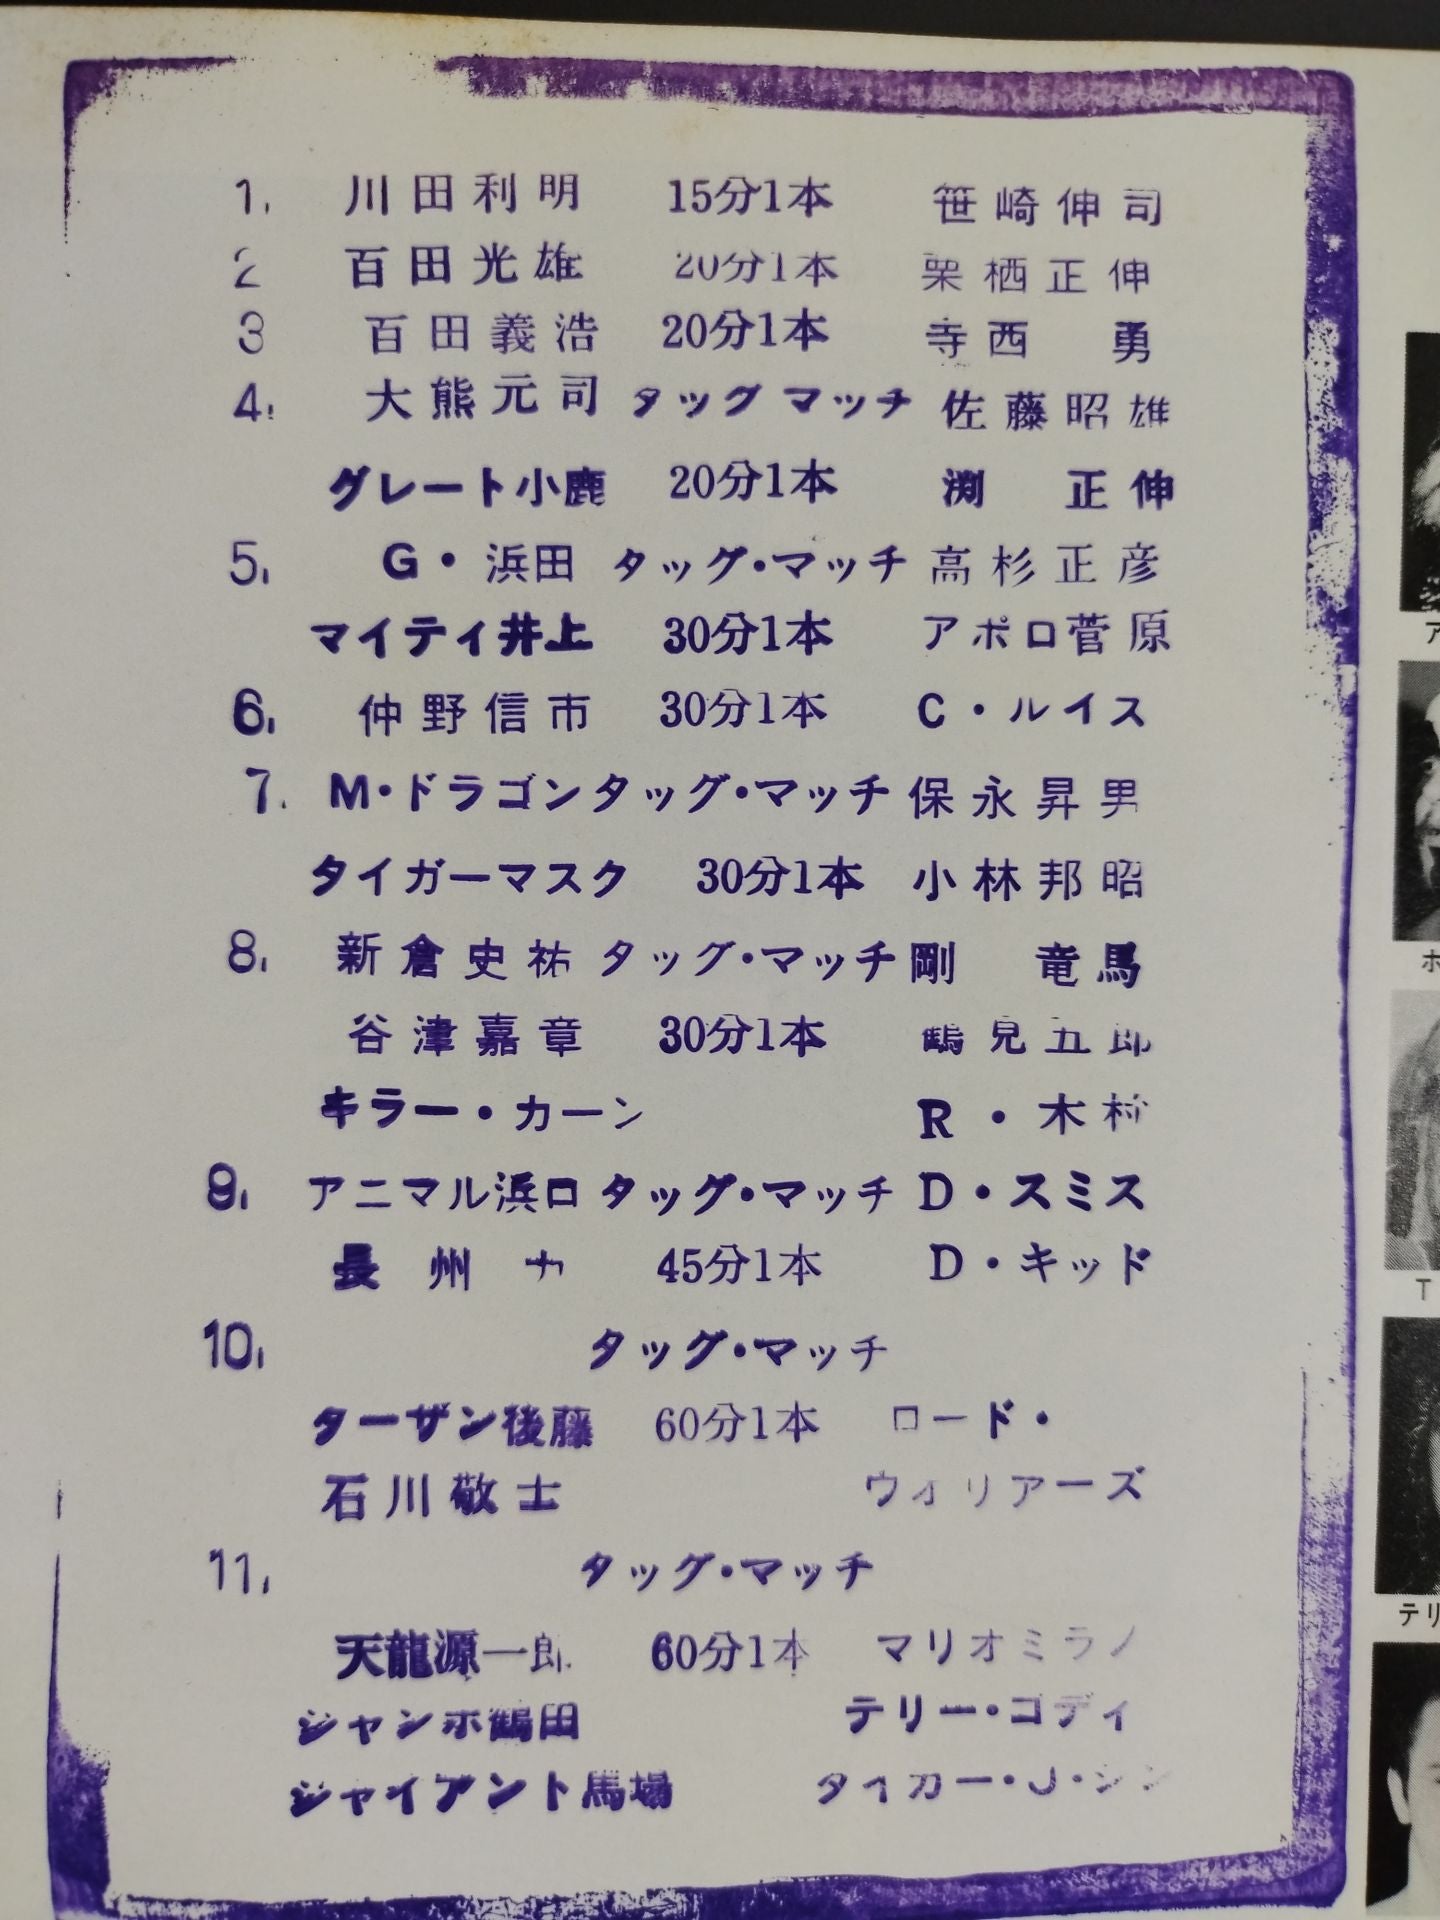 1. 川田利明 15分1本 笹崎伸司
2 百田光雄 20分1本 栗栖正伸
3 百田義浩 20分1本 寺西 勇
4. 大熊元司 タッグマッチ 佐藤昭雄
グレート小鹿 20分1本 渕 正伸
5. G・浜田 タッグ・マッチ 高杉正彦
マイティ井上 30分1本 アポロ菅原
6. 仲野信市 30分1本 C・ルイス
7. M・ドラゴン タッグ・マッチ 保永昇男
タイガーマスク 30分1本 小林邦昭
8. 新倉史祐 タッグ・マッチ 剛 竜馬
谷津嘉章 30分1本 鶴見五郎
キラー・カーン R・木村
9. アニマル浜口 タッグ・マッチ D・スミス
長州力 45分1本 D・キッド
10. タッグ・マッチ
ターザン後藤 60分1本 ロード・
石川敬士 ウォリアーズ
11. タッグ・マッチ
天龍源一郎 60分1本 マリオミラノ
ジャンボ鶴田 テリー・ゴディ
ジャイアント馬場 タイガー・J・シン
テリ
T